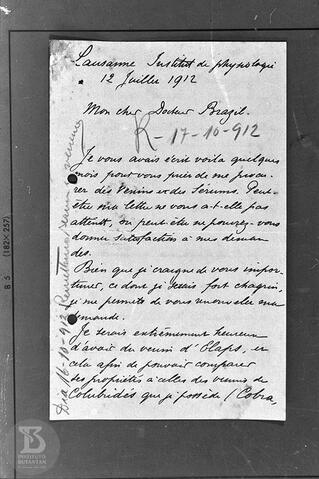 Lausanne Institut de physiologie
12 Juillet 1912
Mon cher Docteur Brazil.
R-17-10-912
Je vous avais écrit voilà quelques
mois pour vous prier de me procu-
rer des Venins et des Sérums. Peut-
être ma lettre ne vous a-t-elle pas
atteint, ou peut-être ne pouvez-vous
donner satisfaction à mes deman-
des.
Bien que je craigne de vous impor-
tuner, ce dont je serais fort chagrin,
je me permets de vous renouveler ma
demande.
Je serais extrêmement heureux
d'avoir du venin d'Elaps, et
cela afin de pouvoir comparer
ses propriétés à celles des venins de
Colubridés que je possède (Cobra,
Dia 16-10-912 Remetteu-se serum e veneno
B 5 (182×257)
INSTITUTO
BUTANTAN